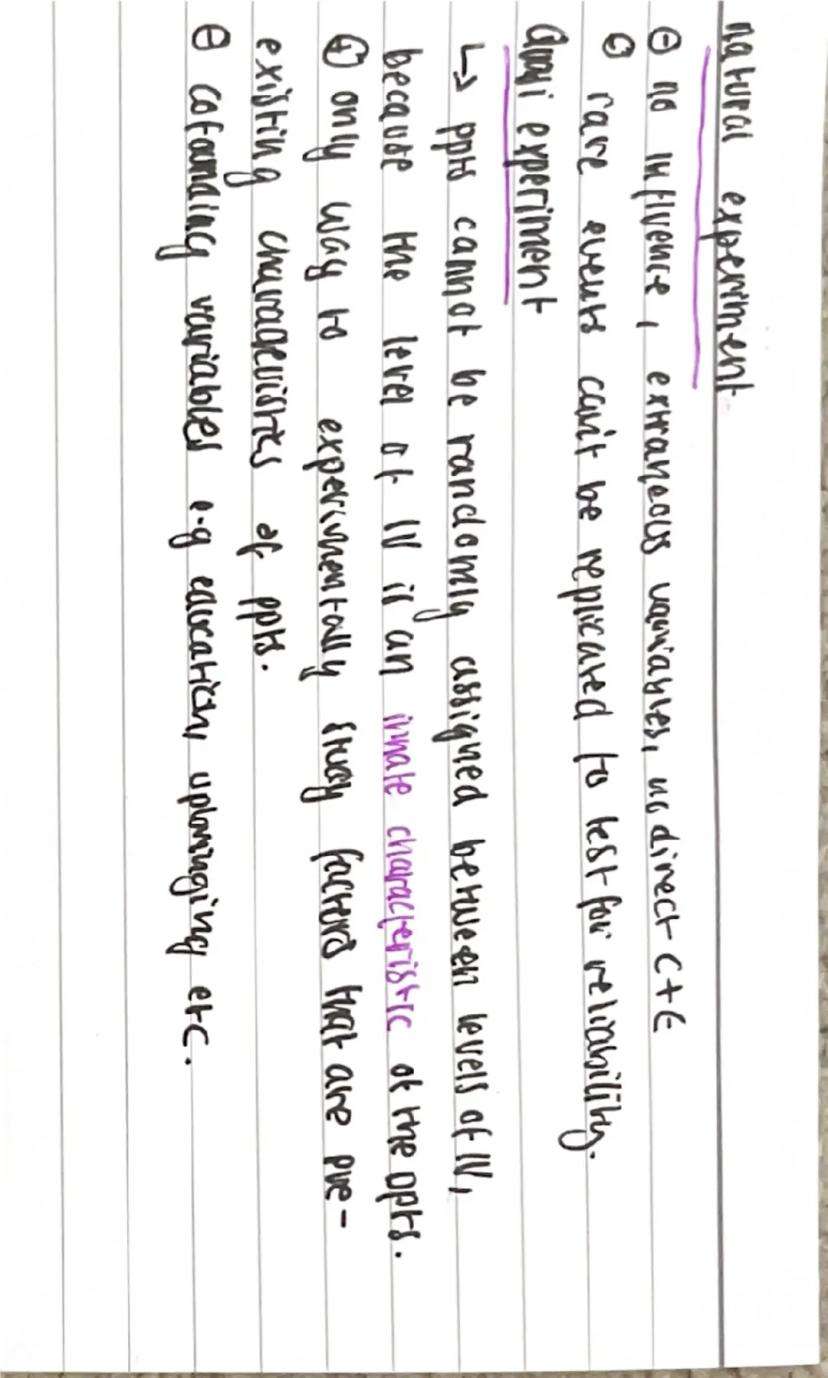 natural experiment
⊖ no influence, extraneous variables, no direct C+E
⊖ rare events can't be replicated to test for reliability.
Quasi experiment
↳ ppts cannot be randomly assigned between levels of IV,
because the level of IV is an innate characteristic of the ppts.
⊕ only way to experimentally study factors that are pre-
existing characteristics of ppts.
⊖ cofounding variables e.g education, upbringing etc.